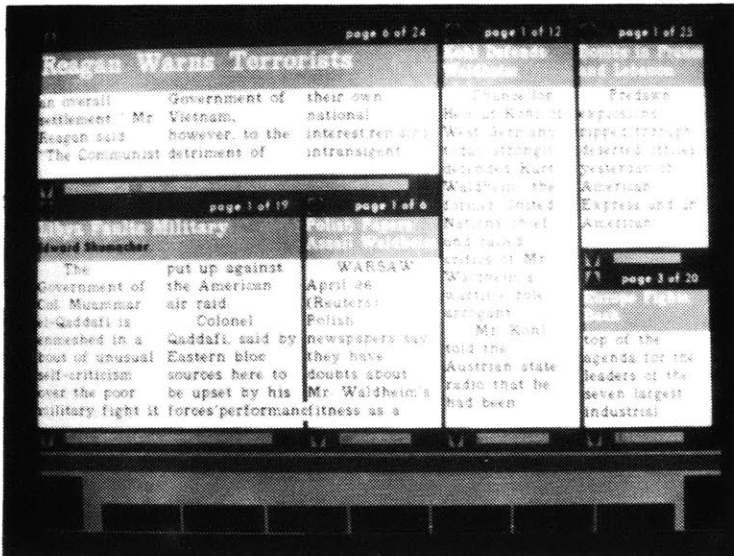 page 6 of 24
Reagan Warns Terrorists
an overall
settlement," Mr
Reagan said
"The Communist
Government of
Vietnam,
however, to the
detriment of
their own
national
interest
intransigent
page 1 of 12
Kohl Defends
Waldheim
Chancellor
Helmut Kohl of
West Germany
today strongly
defended Kurt
Waldheim, the
former United
Nations chief
and called
critics of Mr
Waldheim's
wartime role
arrogant
Mr. Kohl
told the
Austrian state
radio that he
had been
page 1 of 25
Bombs in
and
Predawn
explosions
ripped through
deserted
yesterday at
American
Express and
American
page 1 of 19
Libya Faults Military
Edward Shumacher
The
Government of
Col. Muammar
el-Qaddafi is
enmeshed in a
bout of unusual
self-criticism
over the poor
military fight it
put up against
the American
air raid.
Colonel
Qaddafi, said by
Eastern bloc
sources here to
be upset by his
forces' performance
page 1 of 6
Polish Papers
Assail Waldheim
WARSAW
April 26
(Reuters)
Polish
newspapers say
they have
doubts about
Mr. Waldheim's
fitness as a
page 3 of 20
top of the
agenda for the
leaders of the
seven largest
industrial